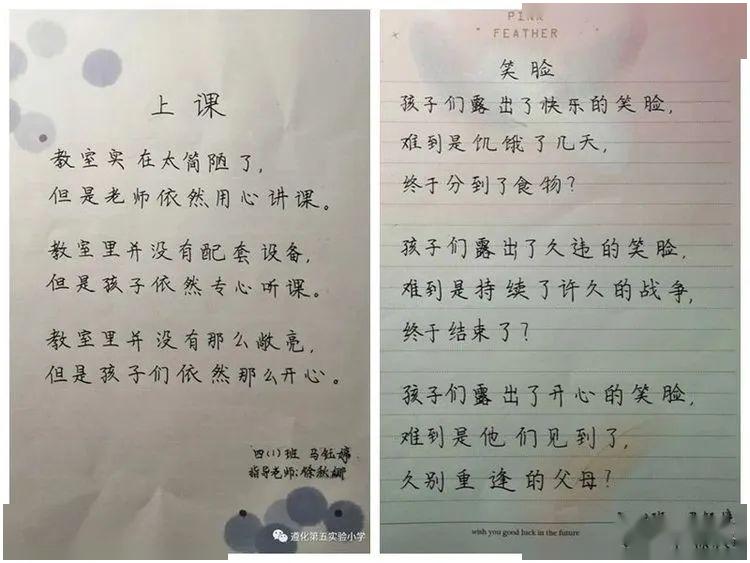 上课
教室实在太简陋了,
但是老师依然用心讲课。
教室里并没有配套设备,
但是孩子依然专心听课。
教室里并没有那么敞亮,
但是孩子们依然那么开心。
四(1)班 马钰婷
指导老师:徐秋娜
遵化第五实验小学
PINK
" FEATHER "
笑脸
孩子们露出了快乐的笑脸,
难到是饥饿了几天,
终于分到了食物?
孩子们露出了久违的笑脸,
难到是持续了许久的战争,
终于结束了?
孩子们露出了开心的笑脸,
难到是他们见到了,
久别重逢的父母?
wish you good luck in the future